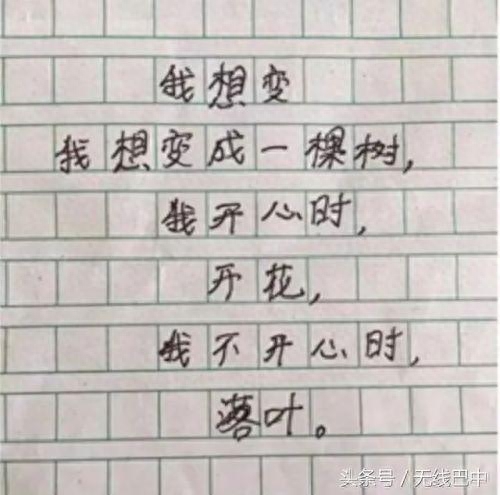 我想变
我想变成一棵树，
我开心时，
开花，
我不开心时，
落叶。
头条号／无线巴中